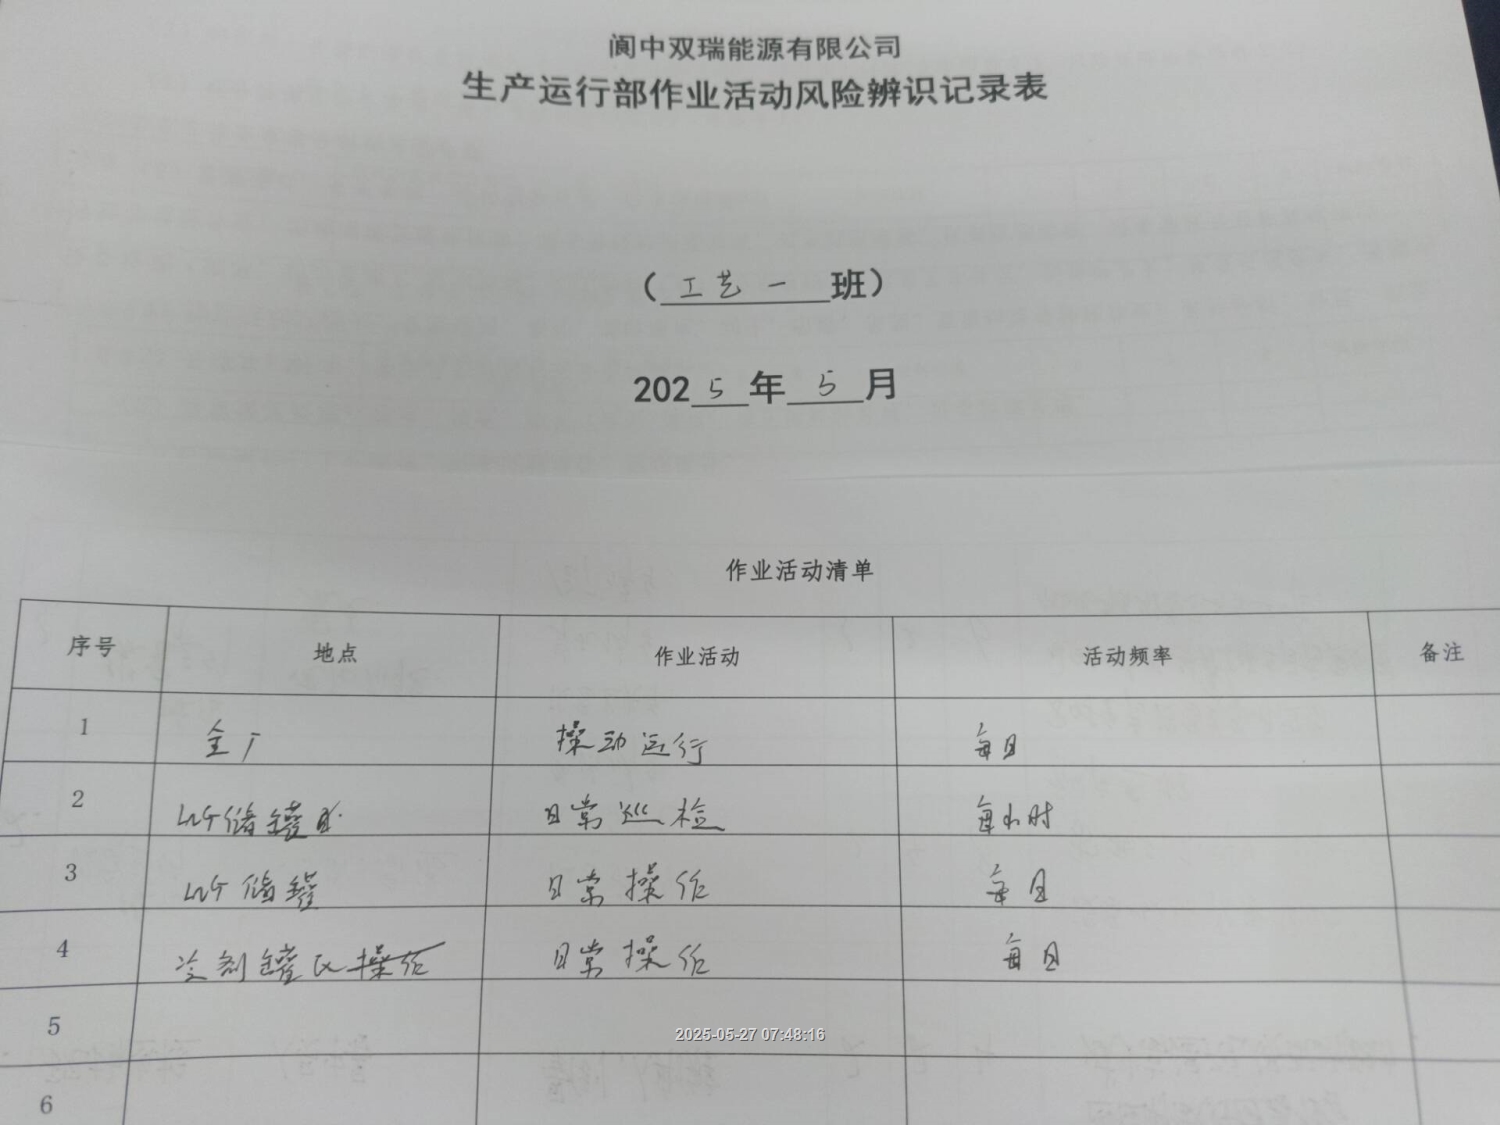 阆中双瑞能源有限公司
生产运行部作业活动风险辨识记录表
（工艺一班）
2025年5月
作业活动清单
序号 地点 作业活动 活动频率 备注
1 全厂 操动运行 每日
2 储罐区 日常巡检 每小时
3 储罐 日常操作 每日
4 冷剂罐区操作 日常操作 每日
5
6
2025-05-27 07:48:16